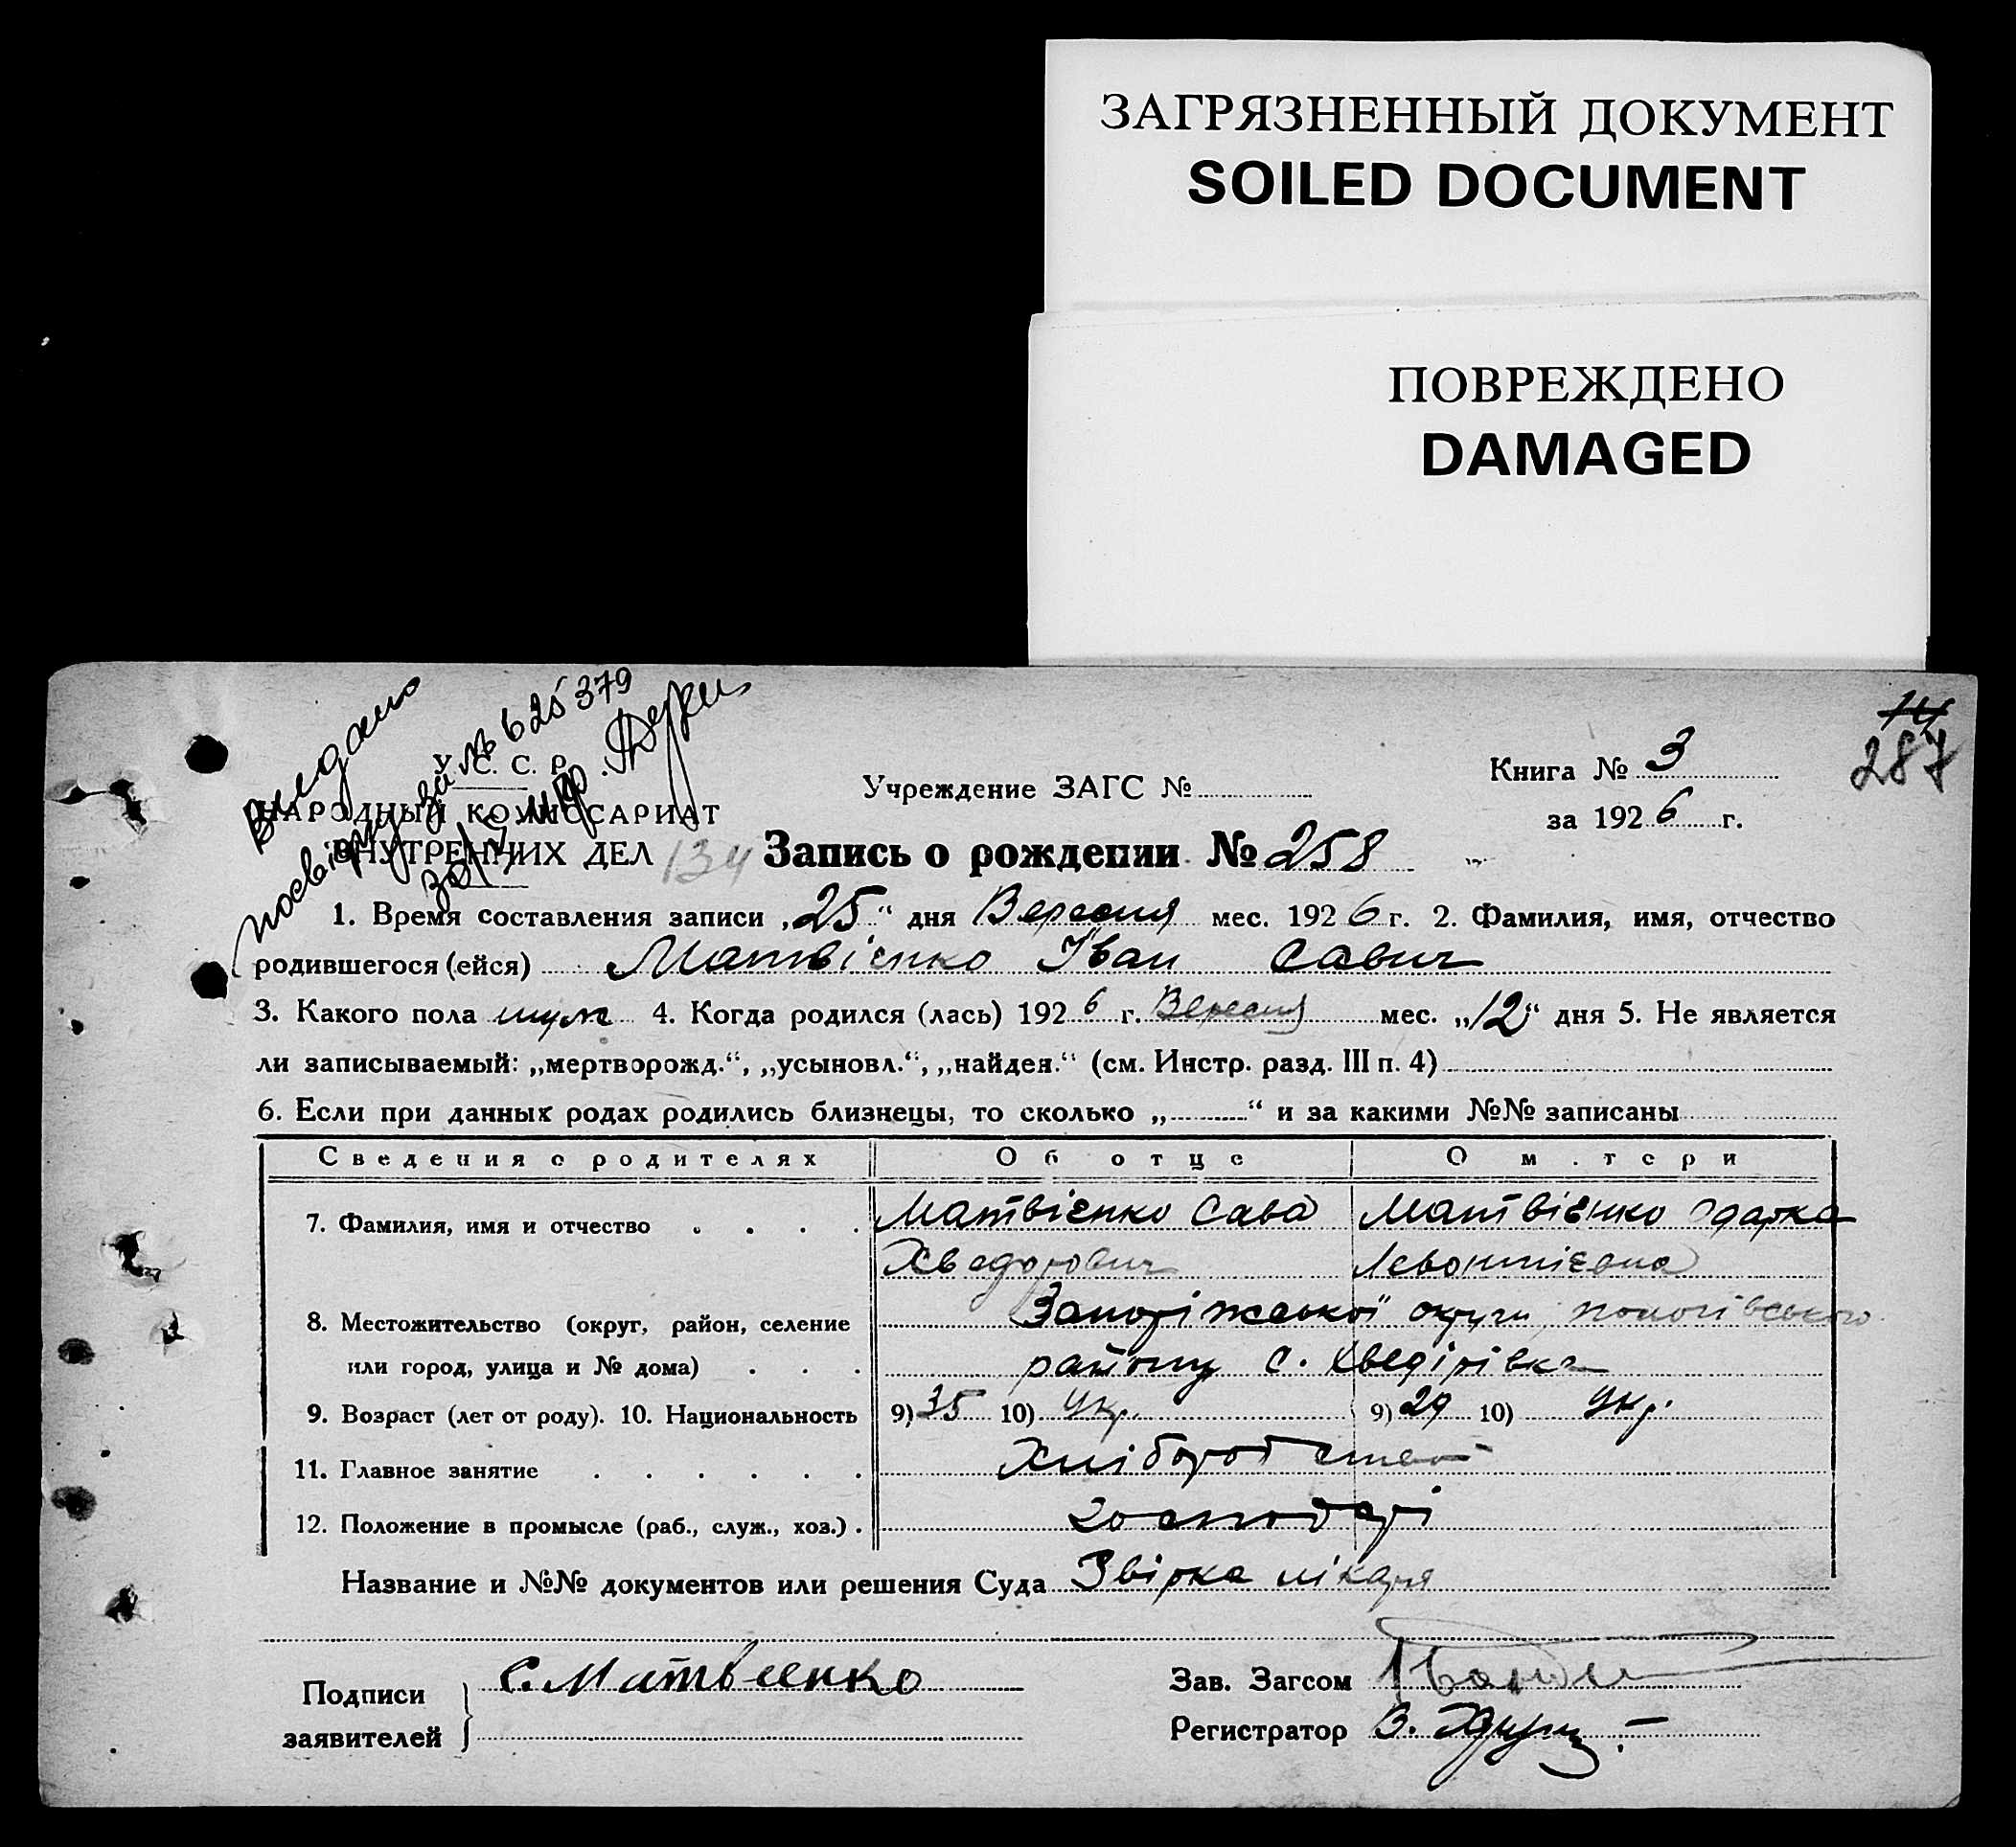 ЗАГРЯЗНЕННЫЙ ДОКУМЕНТ
SOILED DOCUMENT
ПОВРЕЖДЕНО
DAMAGED
14
287
Видано
посвідку за № 625379
У. С. С. Р.
НАРОДНЫЙ КОМИССАРИАТ
ВНУТРЕННИХ ДЕЛ
134
Учреждение ЗАГС №
Книга № 3
за 1926 г.
Запись о рождении № 258
1. Время составления записи „25“ дня Вересня мес. 1926 г. 2. Фамилия, имя, отчество
родившегося (ейся) Матвієнко Іван Савич
3. Какого пола муж 4. Когда родился (лась) 1926 г. Вересня мес. „12“ дня 5. Не является
ли записываемый: „мертворожд.“, „усыновл.“, „найден.“ (см. Инстр. разд. III п. 4)
6. Если при данных родах родились близнецы, то сколько „ “ и за какими №№ записаны
Сведения о родителях Об отце О м.тери
7. Фамилия, имя и отчество . . . . Матвієнко Сава Матвієнко Одарка
Хведорович Левонтієвна
8. Местожительство (округ, район, селение Запоріжської округи, пологівського
или город, улица и № дома) . . . району с. Хведірівка
9. Возраст (лет от роду). 10. Национальность 9) 35 10) Укр. 9) 29 10) Укр.
11. Главное занятие . . . . . . Хліборобство
12. Положение в промысле (раб., служ., хоз.) . господарі
Название и №№ документов или решения Суда Звірка лікаря
Подписи
заявителей
С. Матвеенко
Зав. Загсом
Регистратор В.